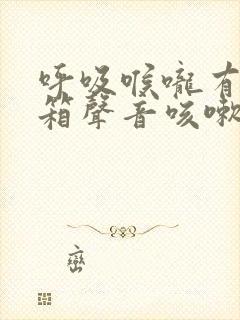 呼吸喉嚨有
箱聲音咳嗽
巒